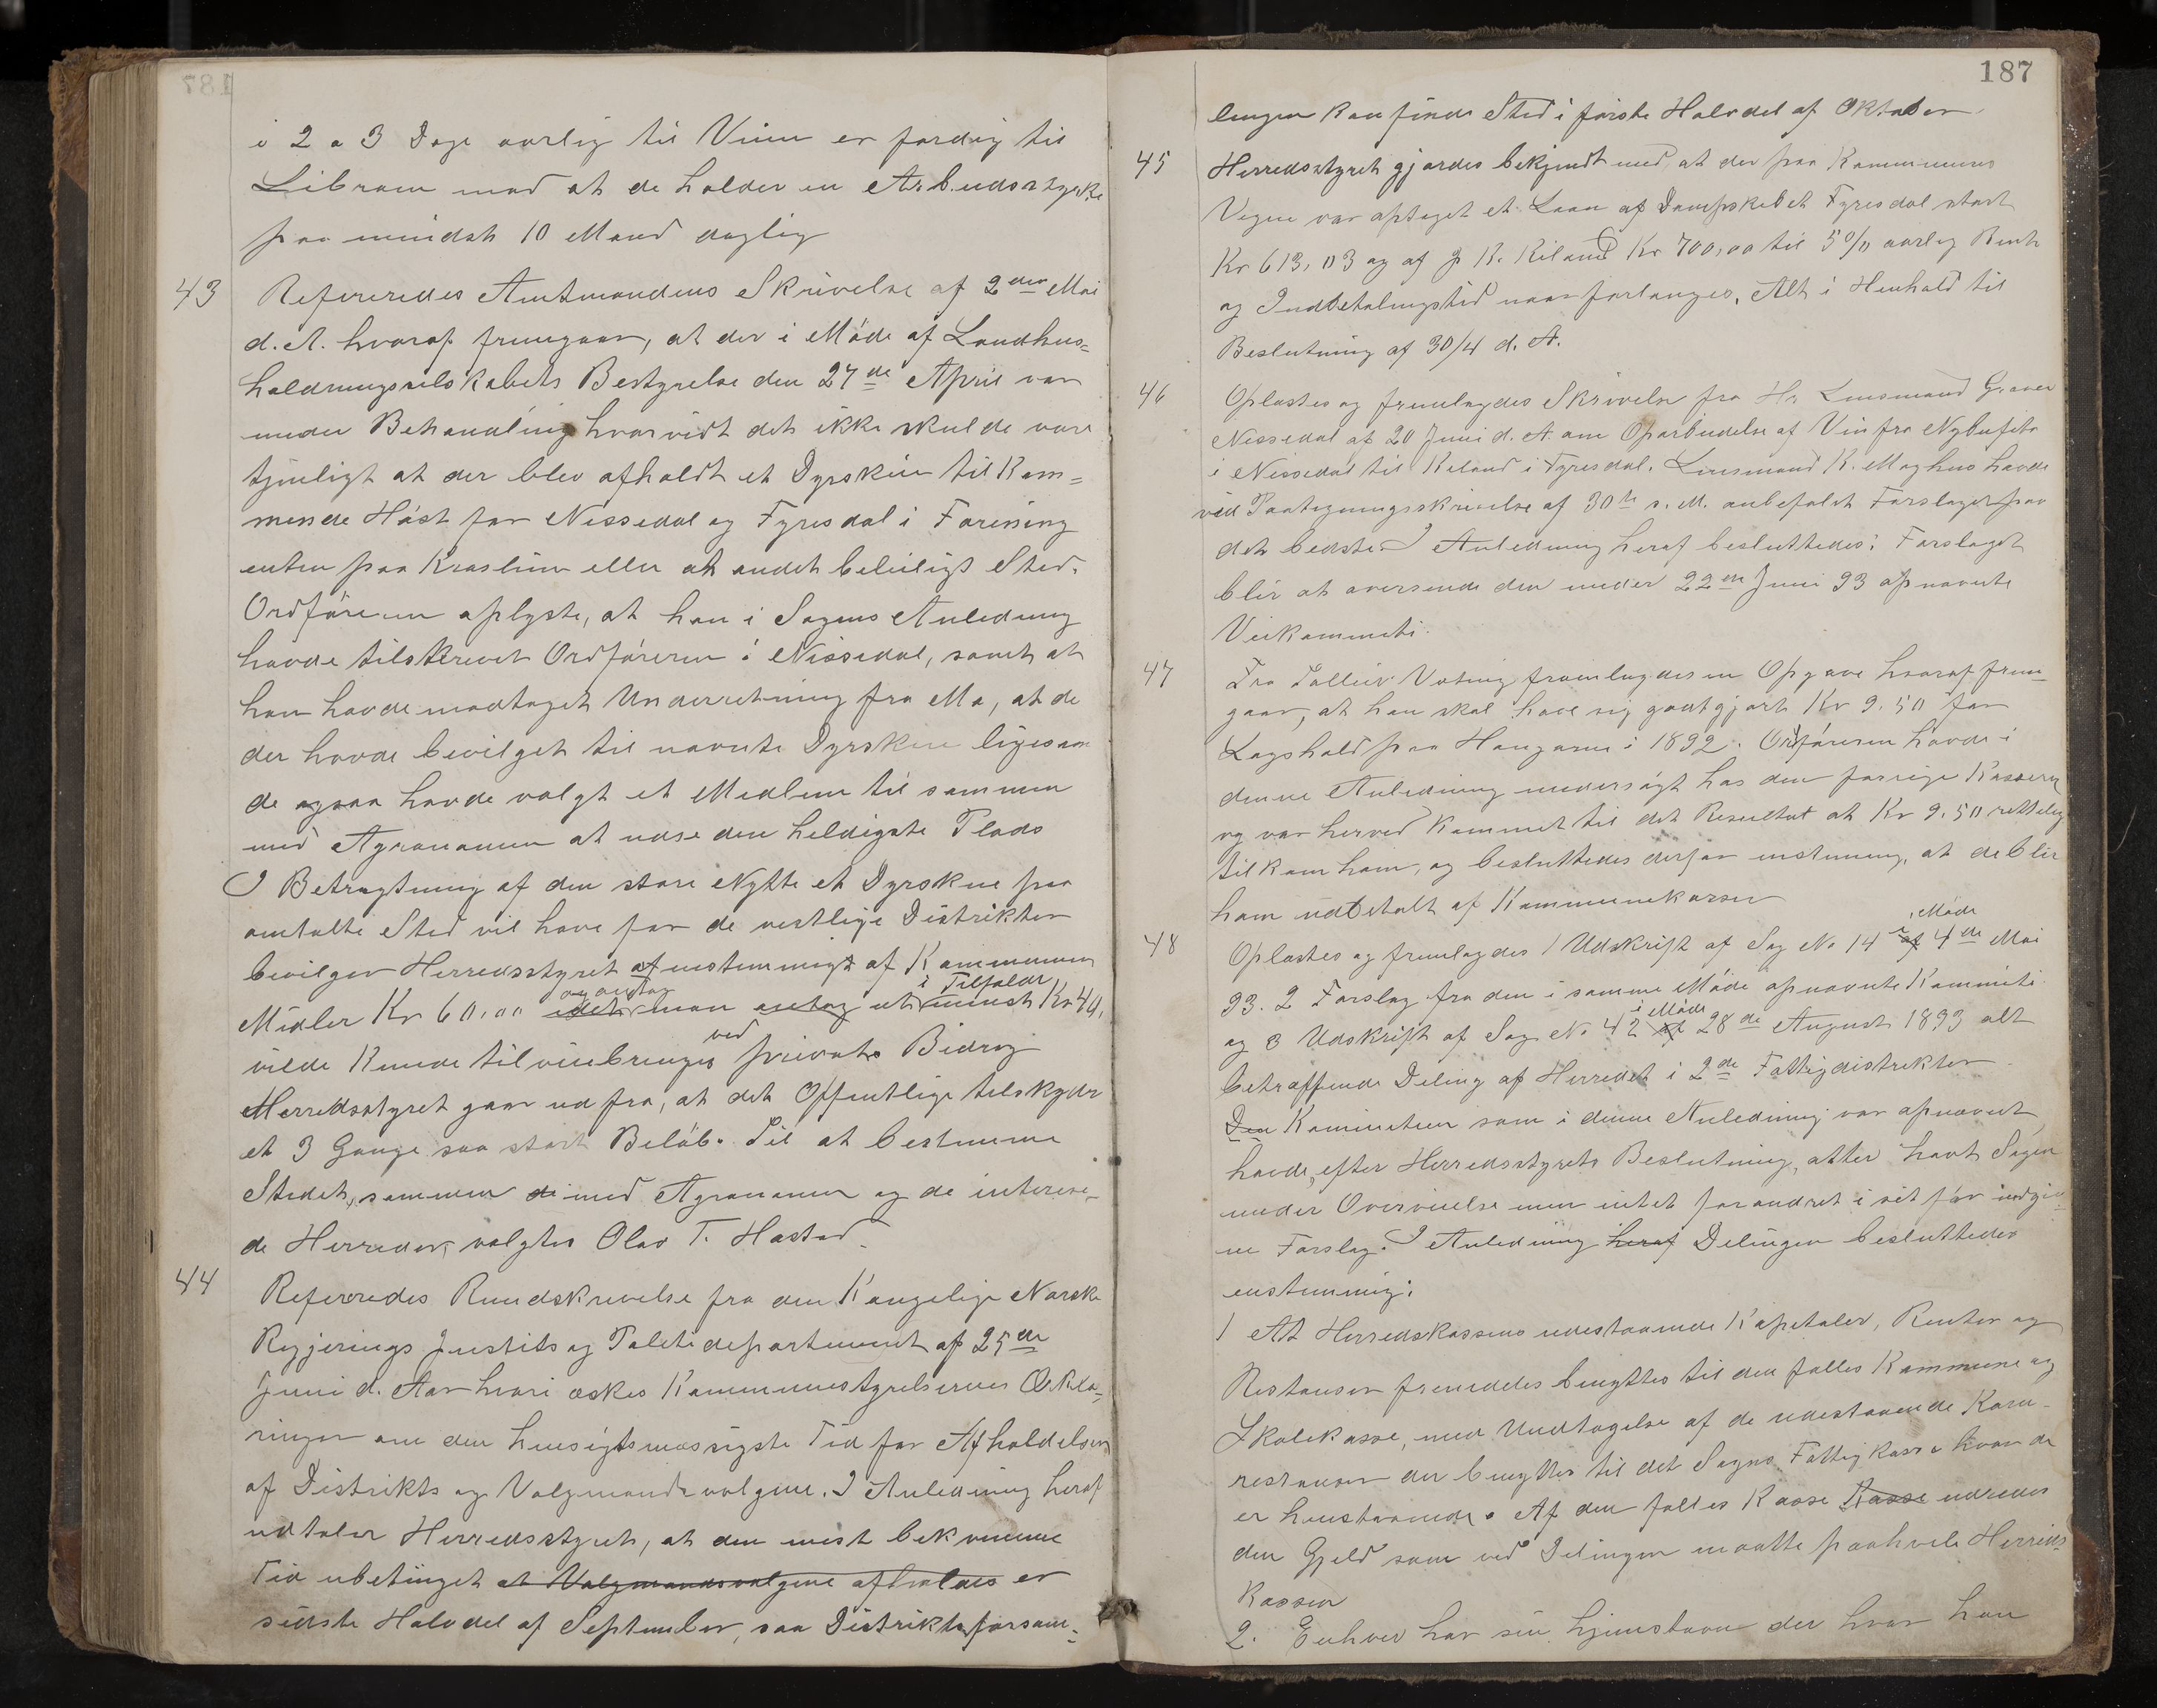 i 2 a 3 Dage aarlig til Veien er færdig til
Librom mod at de holder en Arbeidsstyrke
paa mindst 10 Mand daglig
43 Refereredes Amtmandens Skrivelse af 2den Mai
d. A. hvoraf fremgaar, at der i Møde af Landhus=
holdningsselskabets Bestyrelse den 27de April var
under Behandling hvorvidt det ikke skulde være
tjenligt at der blev afholdt et Dyrskue til Kom=
mende Høst for Nissedal og Fyresdal i Forening
enten paa Kraslien eller et andet beleiligt Sted.
Ordføreren oplyste, at han i Sagens Anledning
havde tilskrevet Ordføreren i Nissedal, samt at
han havde modtaget Underretning fra Mo, at de
der havde bevilget til nævnte Dyrskue ligesom
de ogsaa havde valgt et Medlem til sammen
med Agronomen at udse den heldigste Plads
I Betragtning af den store Nytte et Dyrskue paa
omtalte Sted vil have for de vestlige Distrikter
bevilger Herredsstyret enstemmigt af Kommunens
og antog i Tilfælde
Midler Kr 60,00 idet man antog at mindst Kr 40,
ved
vilde kunde tilveiebringes private Bidrag
Herredsstyret gaar ud fra, at det Offentlige tilskyder
et 3 Gange saa stort Beløb. Til at bestemme
Stedet, sammen de med Agronomen og de interese-
de Herreder, valgtes Olav T. Hastad.
44 Refereredes Rundskrivelse fra den Kongelige Norske
Regjerings Justits og Politidepartement af 25de
Juni d. Aar hvori æskes Kommunestyrelsernes Erklæ=
ringer om den hensigtsmæssigste Tid for Afholdelsen
af Distrikts og Valgmandsvalgene. I Anledning heraf
udtaler Herredsstyret, at den mest bekvemme
Tid ubetinget at Valgmandsvalgene afholdes er
sidste Halvdel af September, saa Distriktsforsam=
187
lingen kan finde Sted i første Halvdel af Oktober.
45 Herredsstyret gjordes bekjendt med, at der paa Kommunens
Vegne var optaget et Laan af Dampskibet Fyresdal stort
Kr 613,03 og af J K. Kiland Kr 700,00 til 5 % aarlig Rente
og Indbetalingstid naar forlanges, Alt i Henhold til
Beslutning af 30/4 d. A.
46 Oplæstes og fremlagdes Skrivelse fra Hr Lensmand Graver
Nissedal af 20 Juni d. A. om Oparbeidelse af Vei fra Nybufeta
i Nissedal til Kiland i Fyresdal. Lensmand K. Moghus havde
ved Paategningsskrivelse af 30te s. M. anbefalet Forslaget paa
det bedste. I Anledning heraf besluttedes: Forslaget
blir at oversende den under 22de Juni 93 opnævnte
Veikommite.
47 Fra Talleiv Veting fremlagdes en Opgave hvoraf frem=
gaar, at han skal have sig godtgjort Kr 9.50 for
Lagshold paa Haugarne i 1892. Ordføreren havde i
denne Anledning undersøgt hos den forrige Kasserer
og var herved kommet til det Resultat at Kr 9.50 rettelig
tilkom ham, og besluttedes derfor enstemmig, at de blir
ham udbetalt af Kommunekassen
i Møde
48 Oplæstes og fremlagdes 1 Udskrift af Sag No 14 af 4de Mai
93. 2 Forslag fra den i samme Møde opnævnte Kommite
i Møde
og 3 Udskrift af Sag No 42 af 28de August 1893 alt
betræffende Deling af Herredet i 2de Fattigdistrikter.
Den Komiteen som i denne Anledning var opnævnt
havde, efter Herredsstyrets Beslutning, atter havt Sagen
under Overveielse men intet forandret i sit før indgiv=
ne Forslag. I Anledning heraf Delingen besluttedes
enstemmig:
1 At Herredskassens udestaaende Kapitaler, Renter og
Restanser fremdeles benyttes til den fælles Kommune og
Skolekasse, med Undtagelse af de udestaaende Korn-
restanser der benyttes til det Sogns Fattigkasse hvor de
er henstaaende. Af den fælles Kasse Kasse udredes
den Gjeld som ved Delingen maatte paahvile Herreds=
kassen
2. Enhver har sin hjemstavn der hvor han